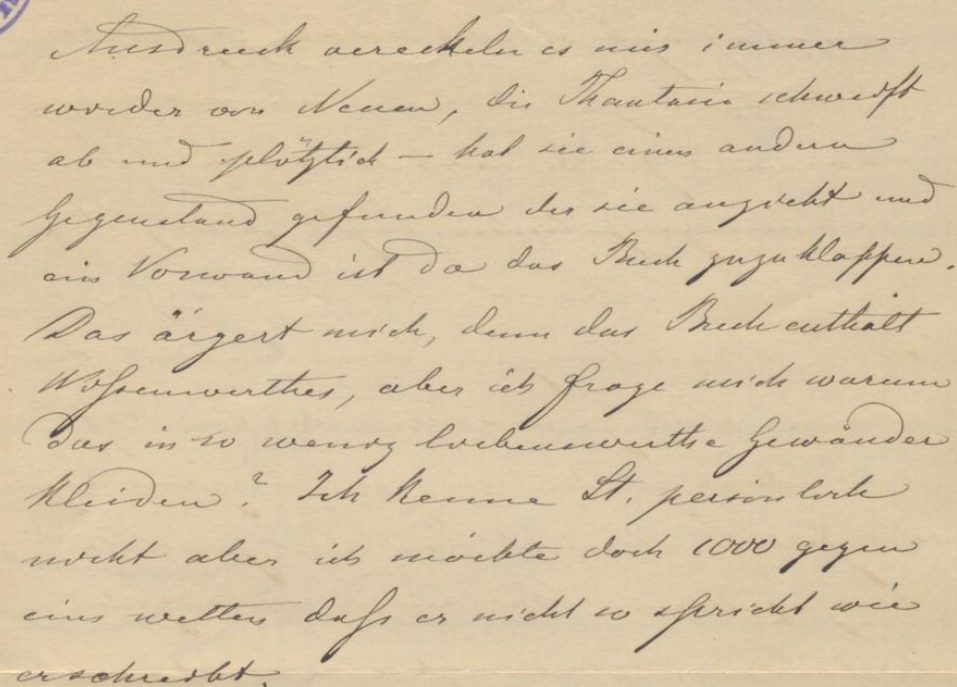 Ausdruck vereckeln es mir immer
wieder von Neuem, die Phantasie schweift
ab und plötzlich – hat sie einen andern
Gegenstand gefunden der sie anzieht und
ein Vorwand ist da das Buch zuzuklappen.
Das ärgert mich, denn das Buch enthält
Wissenwerthes, aber ich frage mich warum
das in so wenig liebenswerthe Gewänder
kleiden? Ich kenne St. persönlich
nicht aber ich möchte doch 1000 gegen
eins wetten daß er nicht so spricht wie
er schreibt.